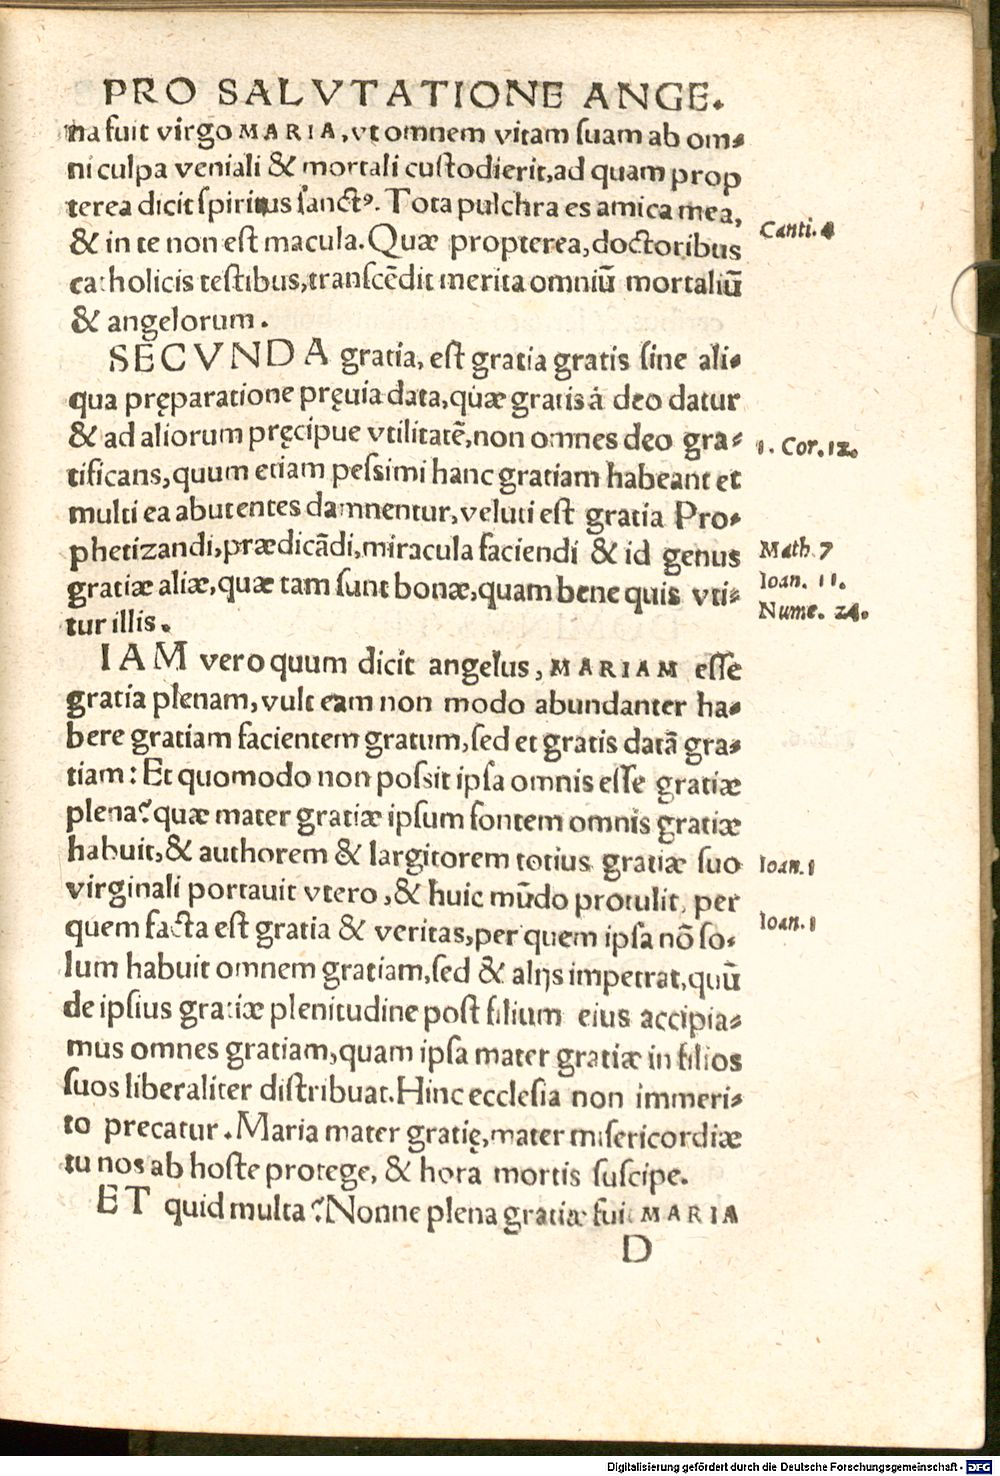 PRO SALVTATIONE ANGE.
na fuit virgo MARIA, vt omnem vitam ſuam ab om⸗
ni culpa veniali & mortali cuſtodierit, ad quam prop
terea dicit ſpiritus ſanctꝰ. Tota pulchra es amica mea,
Canti. 4
& in te non eſt macula. Quæ propterea, doctoribus
catholicis teſtibus, tranſcēdit merita omniū mortaliū
& angelorum.
SECVNDA gratia, eſt gratia gratis ſine ali⸗
qua pręparatione pręuia data, quæ gratis á deo datur
& ad aliorum pręcipue vtilitatē, non omnes deo gra⸗
1. Cor. 12.
tificans, quum etiam peſsimi hanc gratiam habeant et
multi ea abutentes damnentur, veluti eſt gratia Pro⸗
phetizandi, prædicādi, miracula faciendi & id genus
Math. 7
gratiæ aliæ, quæ tam ſunt bonæ, quam bene quis vti⸗
Ioan. 11.
Nume. 24.
tur illis.
IAM vero quum dicit angelus, MARIAM eſſe
gratia plenam, vult eam non modo abundanter ha⸗
bere gratiam facientem gratum, ſed et gratis datā gra⸗
tiam: Et quomodo non poſsit ipſa omnis eſſe gratiæ
plena? quæ mater gratiæ ipſum fontem omnis gratiæ
habuit, & authorem & largitorem totius gratiæ ſuo
Ioan. 1
virginali portauit vtero, & huic mūdo protulit, per
quem facta eſt gratia & veritas, per quem ipſa nō ſo⸗
Ioan. 1
lum habuit omnem gratiam, ſed & alijs impetrat, quū
de ipſius gratiæ plenitudine poſt filium eius accipia⸗
mus omnes gratiam, quam ipſa mater gratiæ in filios
ſuos liberaliter diſtribuat. Hinc eccleſia non immeri⸗
to precatur. Maria mater gratię, mater miſericordiæ
tu nos ab hoſte protege, & hora mortis ſuſcipe.
ET quid multa? Nonne plena gratiæ fuit MARIA
D
Digitalisierung gefördert durch die Deutsche Forschungsgemeinschaft - DFG